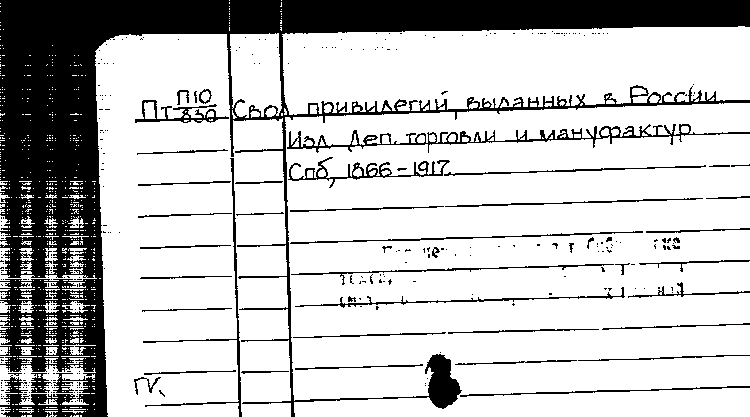 Пт П10/830 Свод привилегий, выданных в России
Изд. Деп. торговли и мануфактур.
Спб, 1866-1917.
ГК.